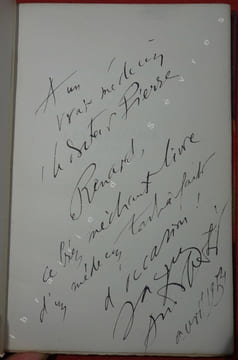 A un
vrai médecin
le Docteur Pierre
Renard,
ce bien méchant livre
d'un médecin tout à fait
d'occasion !
Jacques
avril 1954